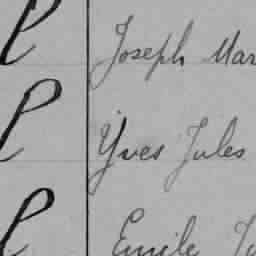 l Joseph Mar
l Yves Jules
l Emile Ju